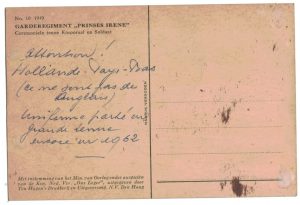 No. 10 1949
GARDEREGIMENT „PRINSES IRENE”
Ceremoniele tenue Korporaal en Soldaat
Attention!
Hollande - Pays-Bas
(ce ne sont pas des
Anglais)
Uniforme porté en
grande tenue
encore en 1962
Met toestemming van het Min. van Oorlog onder auspiciën
van de Kon. Ned. Ver. „Ons Leger”, uitgegeven door
Ten Hagen's Drukkerij en Uitgeversmij. N.V. Den Haag